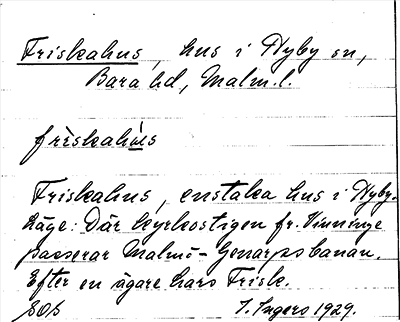 Friskahus, hus i Hyby sn,
Bara hd, Malm. l.
friskahùs
Friskahus, enstaka hus i Hyby.
Läge: Där kyrkostigen fr. Vinninge
passerar Malmö-Genarpsbanan.
Efter en ägare Lars Frisk.
I. Ingers 1929.